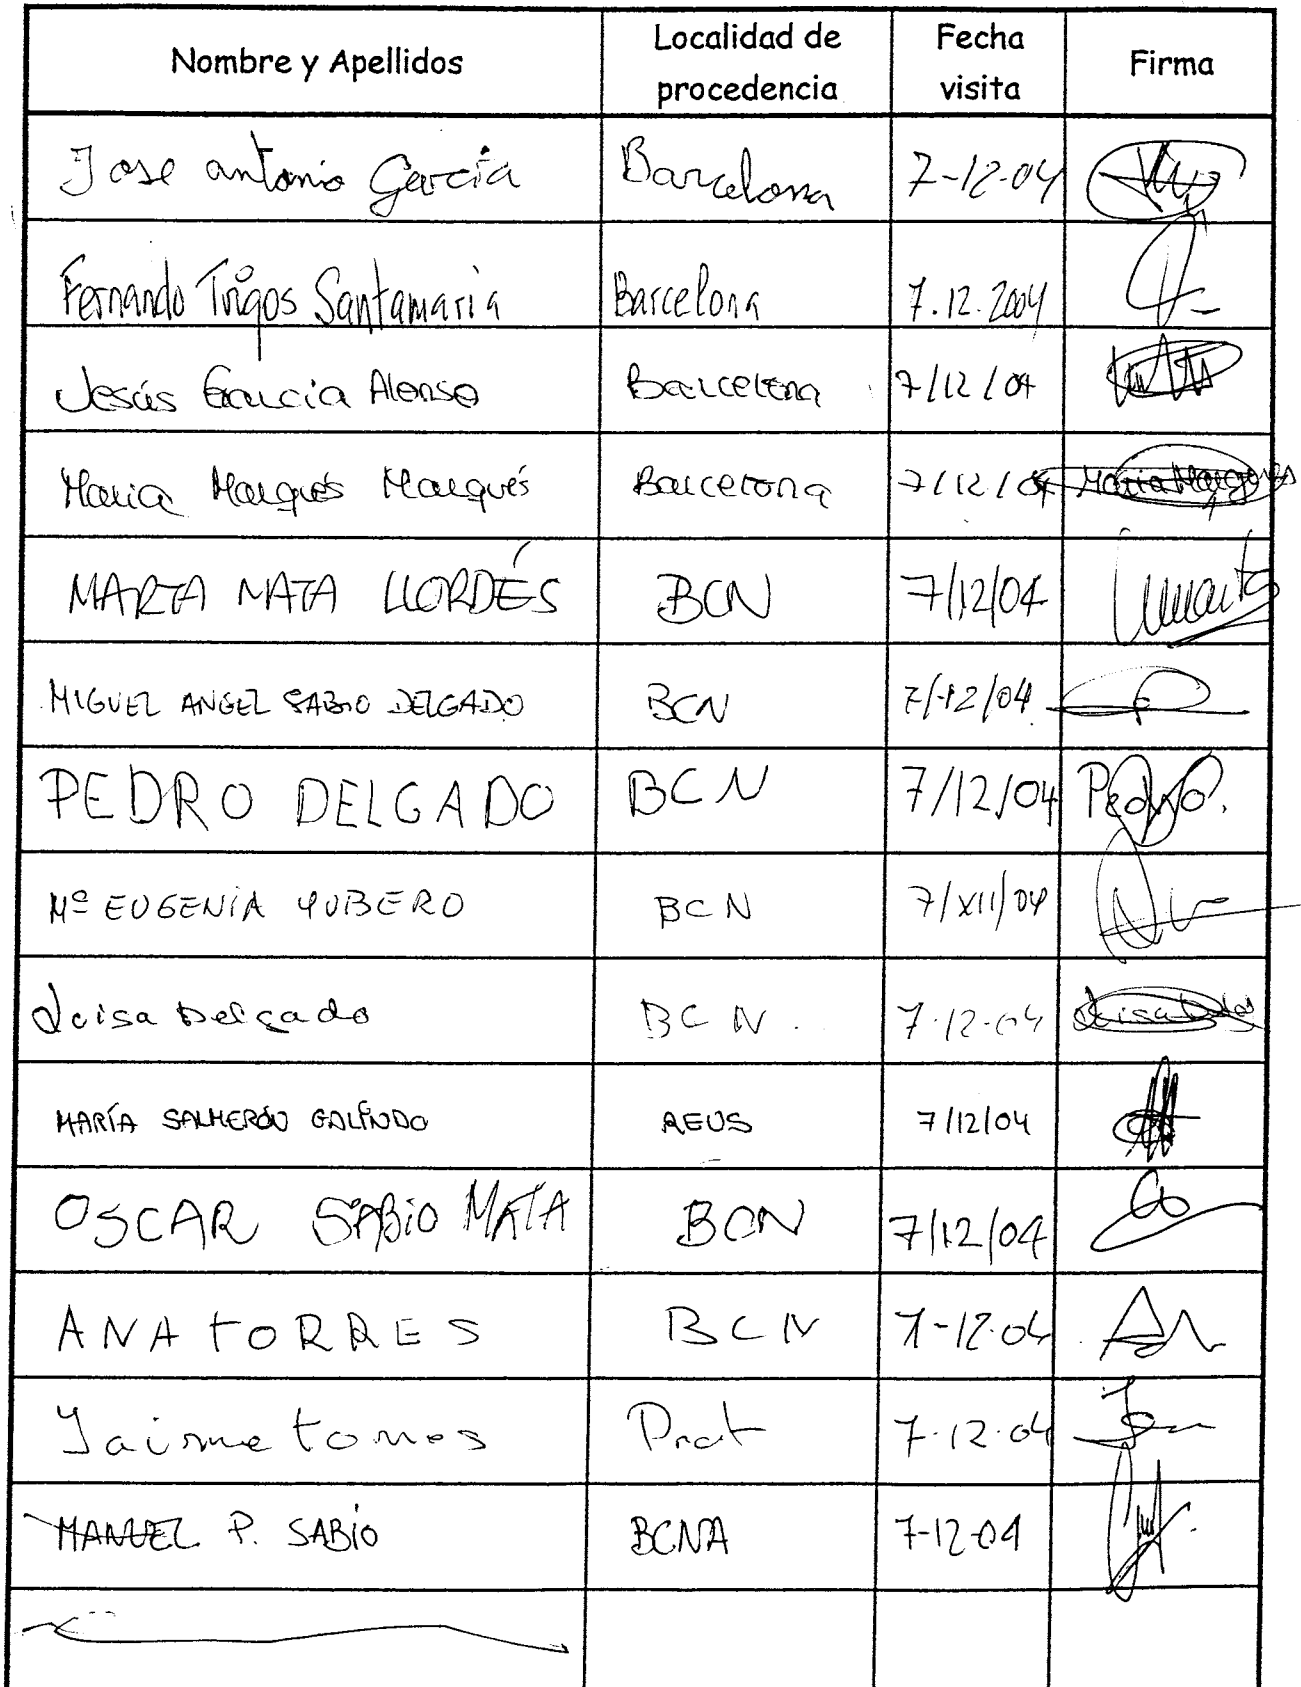 Nombre y Apellidos Localidad de procedencia Fecha visita Firma
Jose antonio García Barcelona 7-12-04
Fernando Trigos Santamaria Barcelona 7.12.2004
Jesús García Alonso Barcelona 7/12/04
Maria Marqués Marqués Barcelona 7/12/04 Maria Marqués
MARTA MATA LLORDÉS BCN 7/12/04
MIGUEL ANGEL SABIO DELGADO BCN 7/12/04
PEDRO DELGADO BCN 7/12/04 Pedro.
Mª EUGENIA YUBERO BCN 7/XII/04
Luisa Delgado BCN. 7-12-04
MARÍA SALMERÓN GALINDO REUS 7/12/04
OSCAR SABIO MATA BCN 7/12/04
ANA TORRES BCN 7-12-04
Jaime torres Prat 7-12-04
MANUEL P. SABIO BCNA 7-12-04